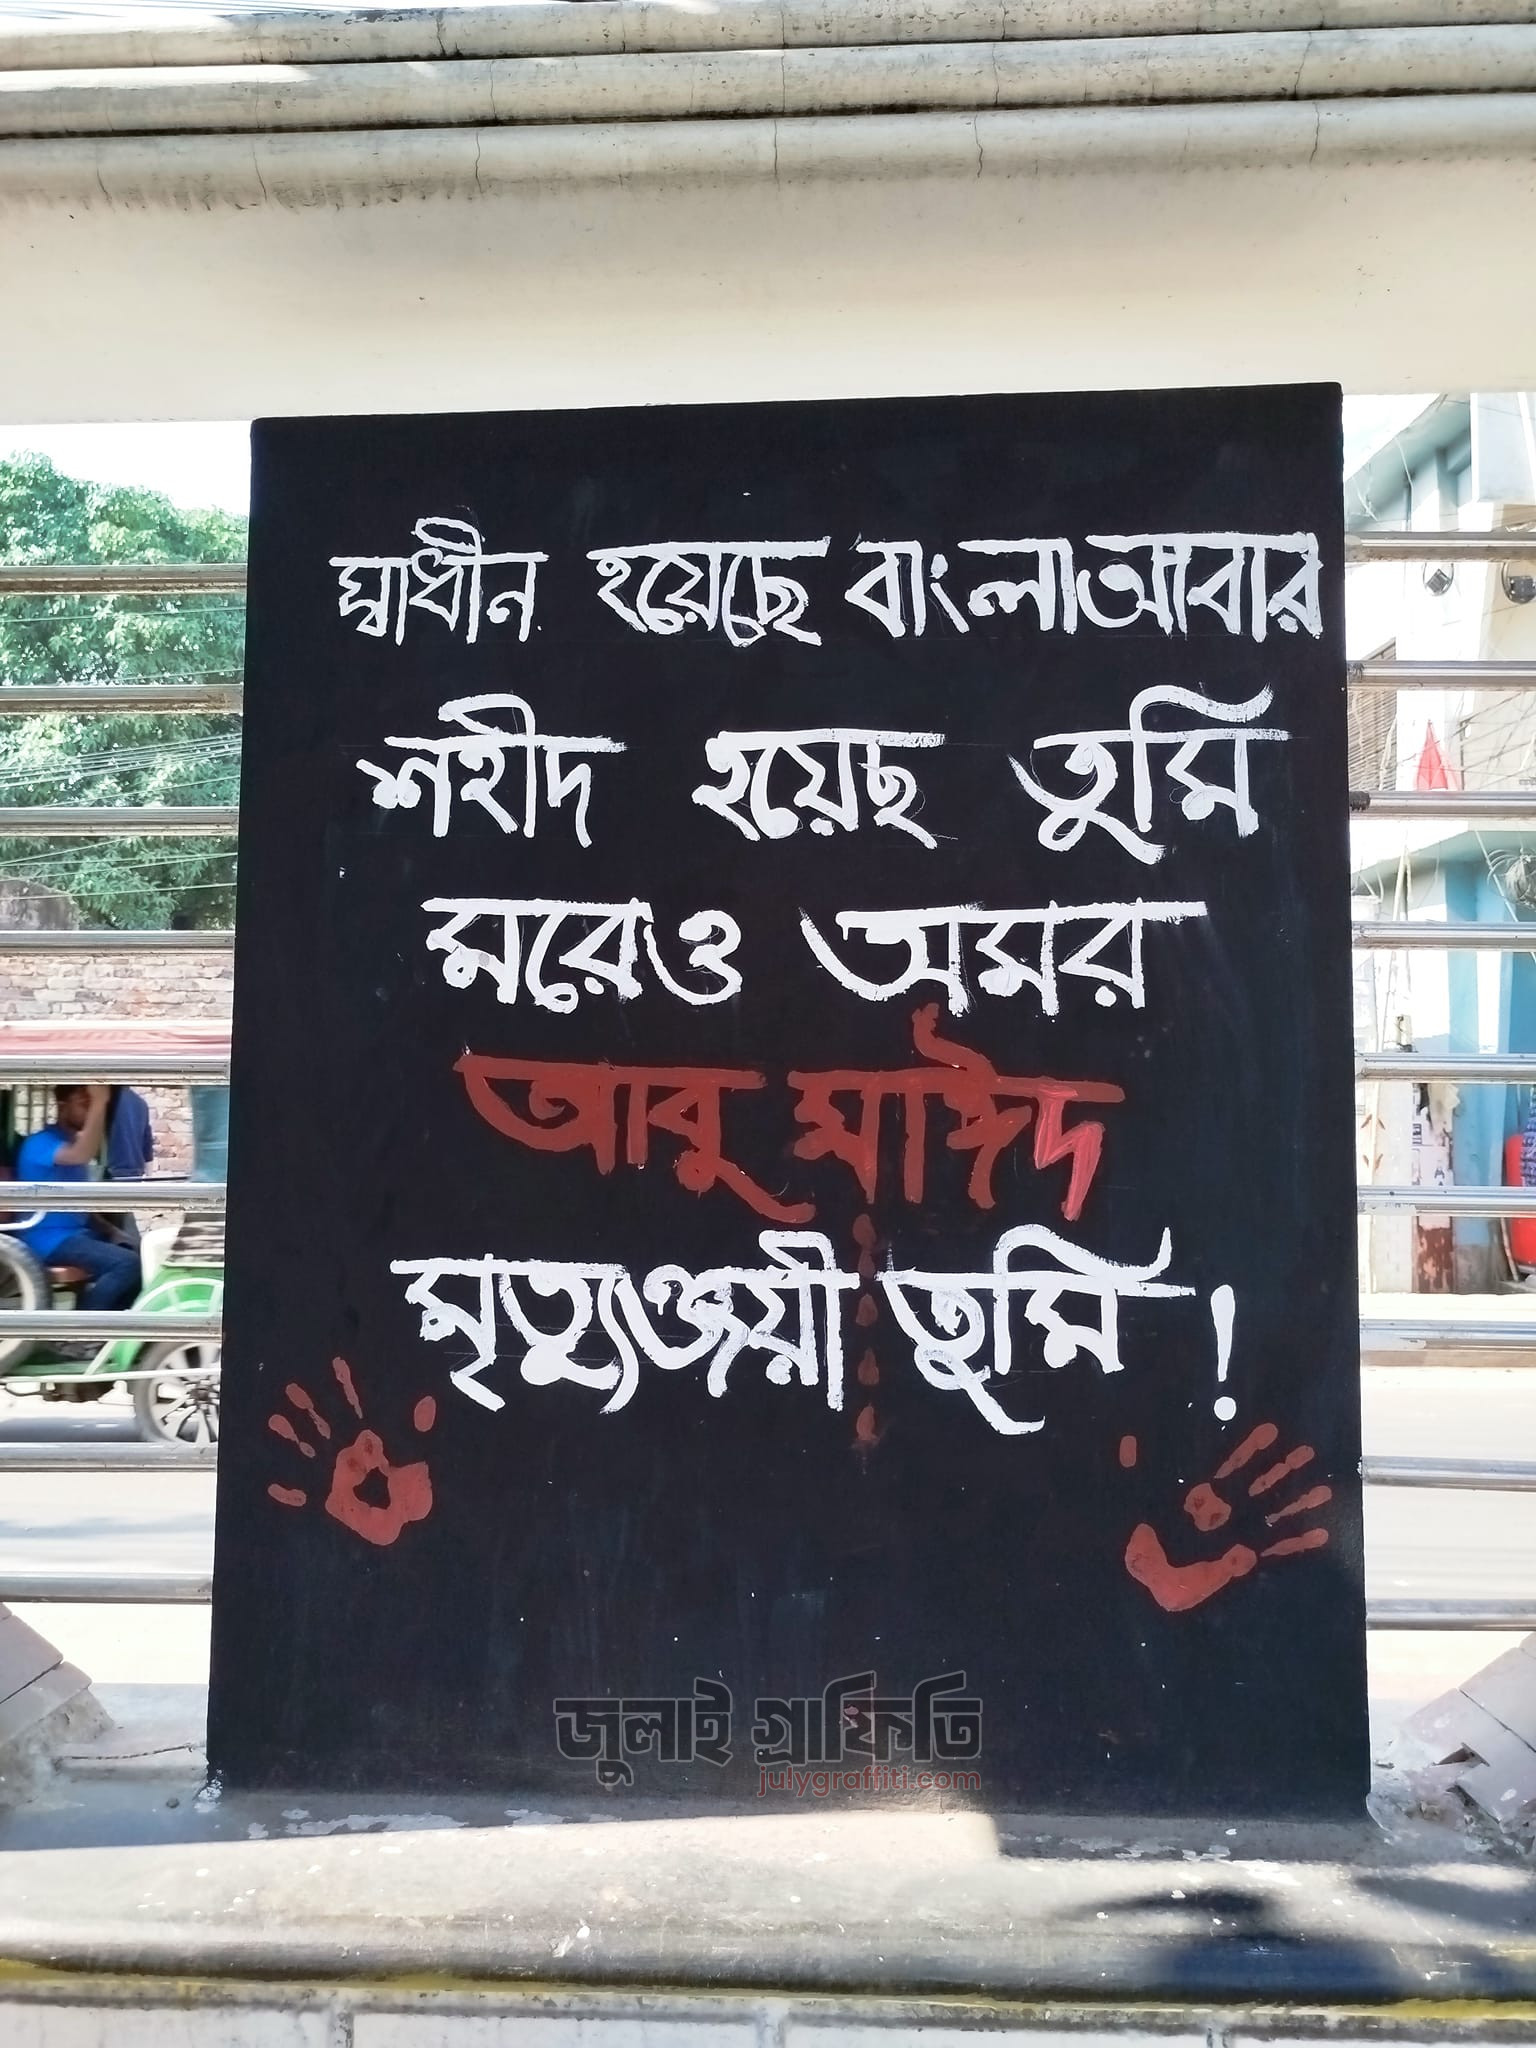 স্বাধীন হয়েছে বাংলা আবার
শহীদ হয়েছ তুমি
মরেও অমর
আবু সাঈদ
মৃত্যুঞ্জয়ী তুমি !
জুলাই গ্রাফিতি
julygraffiti.com